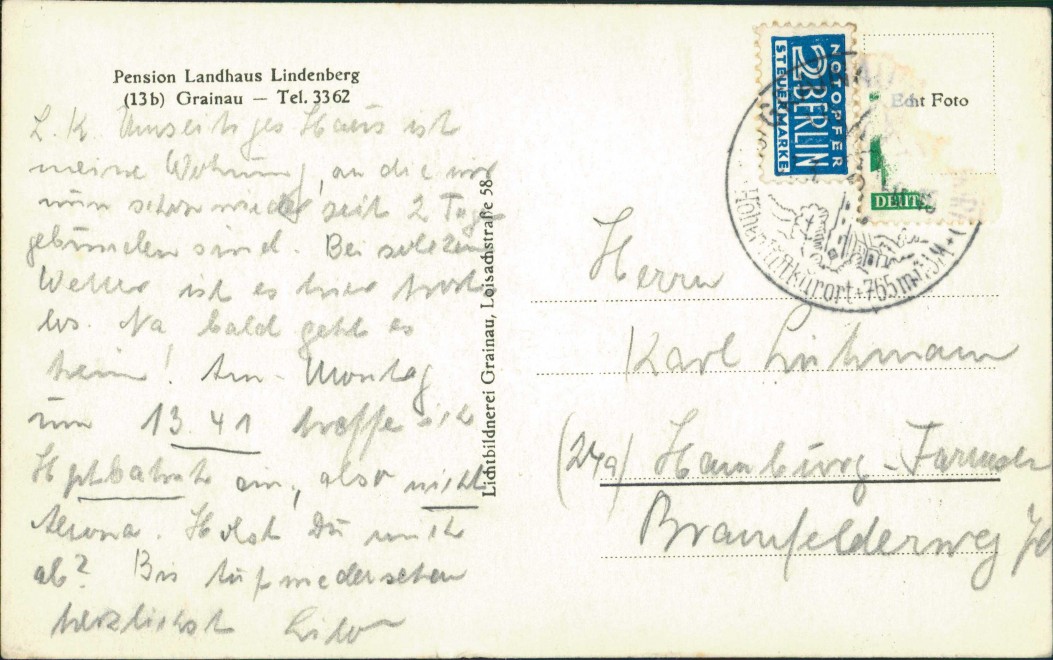 Pension Landhaus Lindenberg
(13b) Grainau — Tel. 3362
L. K. Umseitiges Haus ist
meine Wohnung, an die wir
nun schon wieder seit 2 Tage
gebunden sind. Bei solchem
Wetter ist es hier trost-
los. Na, bald geht es
heim! Am Montag
um 13.41 treffe ich
Hptbahnh ein, also nicht
Altona. Holst Du mich
ab? Bis Aufwiedersehen
herzlichst
Lichtbildnerei Grainau, Loisachstraße 58
NOTOPFER
2 BERLIN
STEUERMARKE
Echt Foto
DEUT
Höhenluftkurort · 765 m ü.M.
Herrn
Karl
(24a) Hamburg-Farmsen
Bramfelderweg